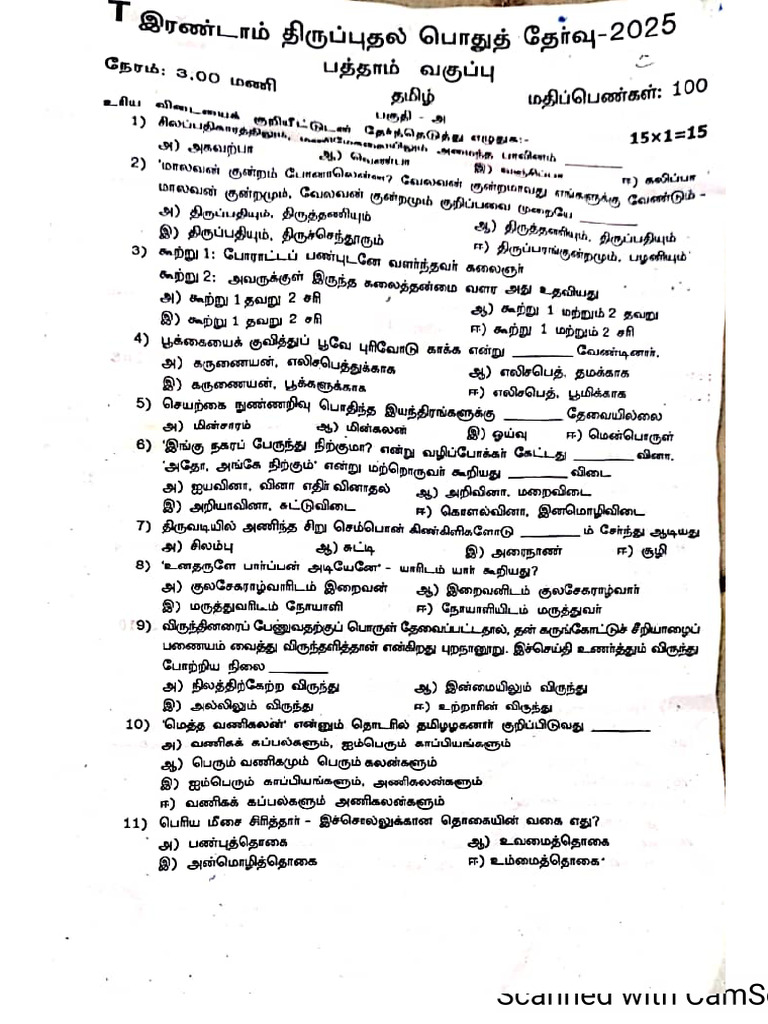 T இரண்டாம் திருப்புதல் பொதுத் தேர்வு-2025
பத்தாம் வகுப்பு
நேரம்: 3.00 மணி தமிழ் மதிப்பெண்கள்: 100
பகுதி - அ
உரிய விடையைக் குறியீட்டுடன் தேர்ந்தெடுத்து எழுதுக:- 15×1=15
1) சிலப்பதிகாரத்திலும், மணிமேகலையிலும் அமைந்த பாவினம் ______
அ) அகவற்பா ஆ) வெண்பா இ) வஞ்சிப்பா ஈ) கலிப்பா
2) 'மாலவன் குன்றம் போனாலென்ன? வேலவன் குன்றமாவது எங்களுக்கு வேண்டும் -
மாலவன் குன்றமும், வேலவன் குன்றமும் குறிப்பவை முறையே ______
அ) திருப்பதியும், திருத்தணியும் ஆ) திருத்தணியும், திருப்பதியும்
இ) திருப்பதியும், திருச்செந்தூரும் ஈ) திருப்பரங்குன்றமும், பழனியும்
3) கூற்று 1: போராட்டப் பண்புடனே வளர்ந்தவர் கலைஞர்
கூற்று 2: அவருக்குள் இருந்த கலைத்தன்மை வளர அது உதவியது
அ) கூற்று 1 தவறு 2 சரி ஆ) கூற்று 1 மற்றும் 2 தவறு
இ) கூற்று 1 தவறு 2 சரி ஈ) கூற்று 1 மற்றும் 2 சரி
4) பூக்கையைக் குவித்துப் பூவே புரிவோடு காக்க என்று ______ வேண்டினார்.
அ) கருணையன், எலிசபெத்துக்காக ஆ) எலிசபெத், தமக்காக
இ) கருணையன், பூக்களுக்காக ஈ) எலிசபெத், பூமிக்காக
5) செயற்கை நுண்ணறிவு பொதிந்த இயந்திரங்களுக்கு ______ தேவையில்லை
அ) மின்சாரம் ஆ) மின்கலன் இ) ஓய்வு ஈ) மென்பொருள்
6) 'இங்கு நகரப் பேருந்து நிற்குமா? என்று வழிப்போக்கர் கேட்டது ______ வினா.
'அதோ, அங்கே நிற்கும்' என்று மற்றொருவர் கூறியது ______ விடை
அ) ஐயவினா, வினா எதிர் வினாதல் ஆ) அறிவினா, மறைவிடை
இ) அறியாவினா, சுட்டுவிடை ஈ) கொளல்வினா, இனமொழிவிடை
7) திருவடியில் அணிந்த சிறு செம்பொன் கிண்கிணிகளோடு ______ ம் சேர்ந்து ஆடியது
அ) சிலம்பு ஆ) சுட்டி இ) அரைநாண் ஈ) சூழி
8) 'உனதருளே பார்ப்பன் அடியேனே' - யாரிடம் யார் கூறியது?
அ) குலசேகராழ்வாரிடம் இறைவன் ஆ) இறைவனிடம் குலசேகராழ்வார்
இ) மருத்துவரிடம் நோயாளி ஈ) நோயாளியிடம் மருத்துவர்
9) விருந்தினரைப் பேணுவதற்குப் பொருள் தேவைப்பட்டதால், தன் கருங்கோட்டுச் சீறியாழைப்
பணையம் வைத்து விருந்தளித்தான் என்கிறது புறநானூறு. இச்செய்தி உணர்த்தும் விருந்து
போற்றிய நிலை ______
அ) நிலத்திற்கேற்ற விருந்து ஆ) இன்மையிலும் விருந்து
இ) அல்லிலும் விருந்து ஈ) உற்றாரின் விருந்து
10) 'மெத்த வணிகலன்' என்னும் தொடரில் தமிழழகனார் குறிப்பிடுவது ______
அ) வணிகக் கப்பல்களும், ஐம்பெரும் காப்பியங்களும்
ஆ) பெரும் வணிகமும் பெரும் கலன்களும்
இ) ஐம்பெரும் காப்பியங்களும், அணிகலன்களும்
ஈ) வணிகக் கப்பல்களும் அணிகலன்களும்
11) பெரிய மீசை சிரித்தார் - இச்சொல்லுக்கான தொகையின் வகை எது?
அ) பண்புத்தொகை ஆ) உவமைத்தொகை
இ) அன்மொழித்தொகை ஈ) உம்மைத்தொகை
Scanned with CamSc